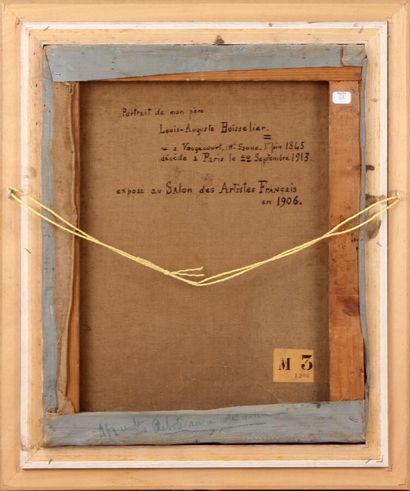 Portrait de mon père
Louis-Auguste Boisselier.
né à Vougécourt, Hte Saone, 1er Juin 1845
décédé à Paris le 22 Septembre 1913.
exposé au Salon des Artistes Français
en 1906.
M 3